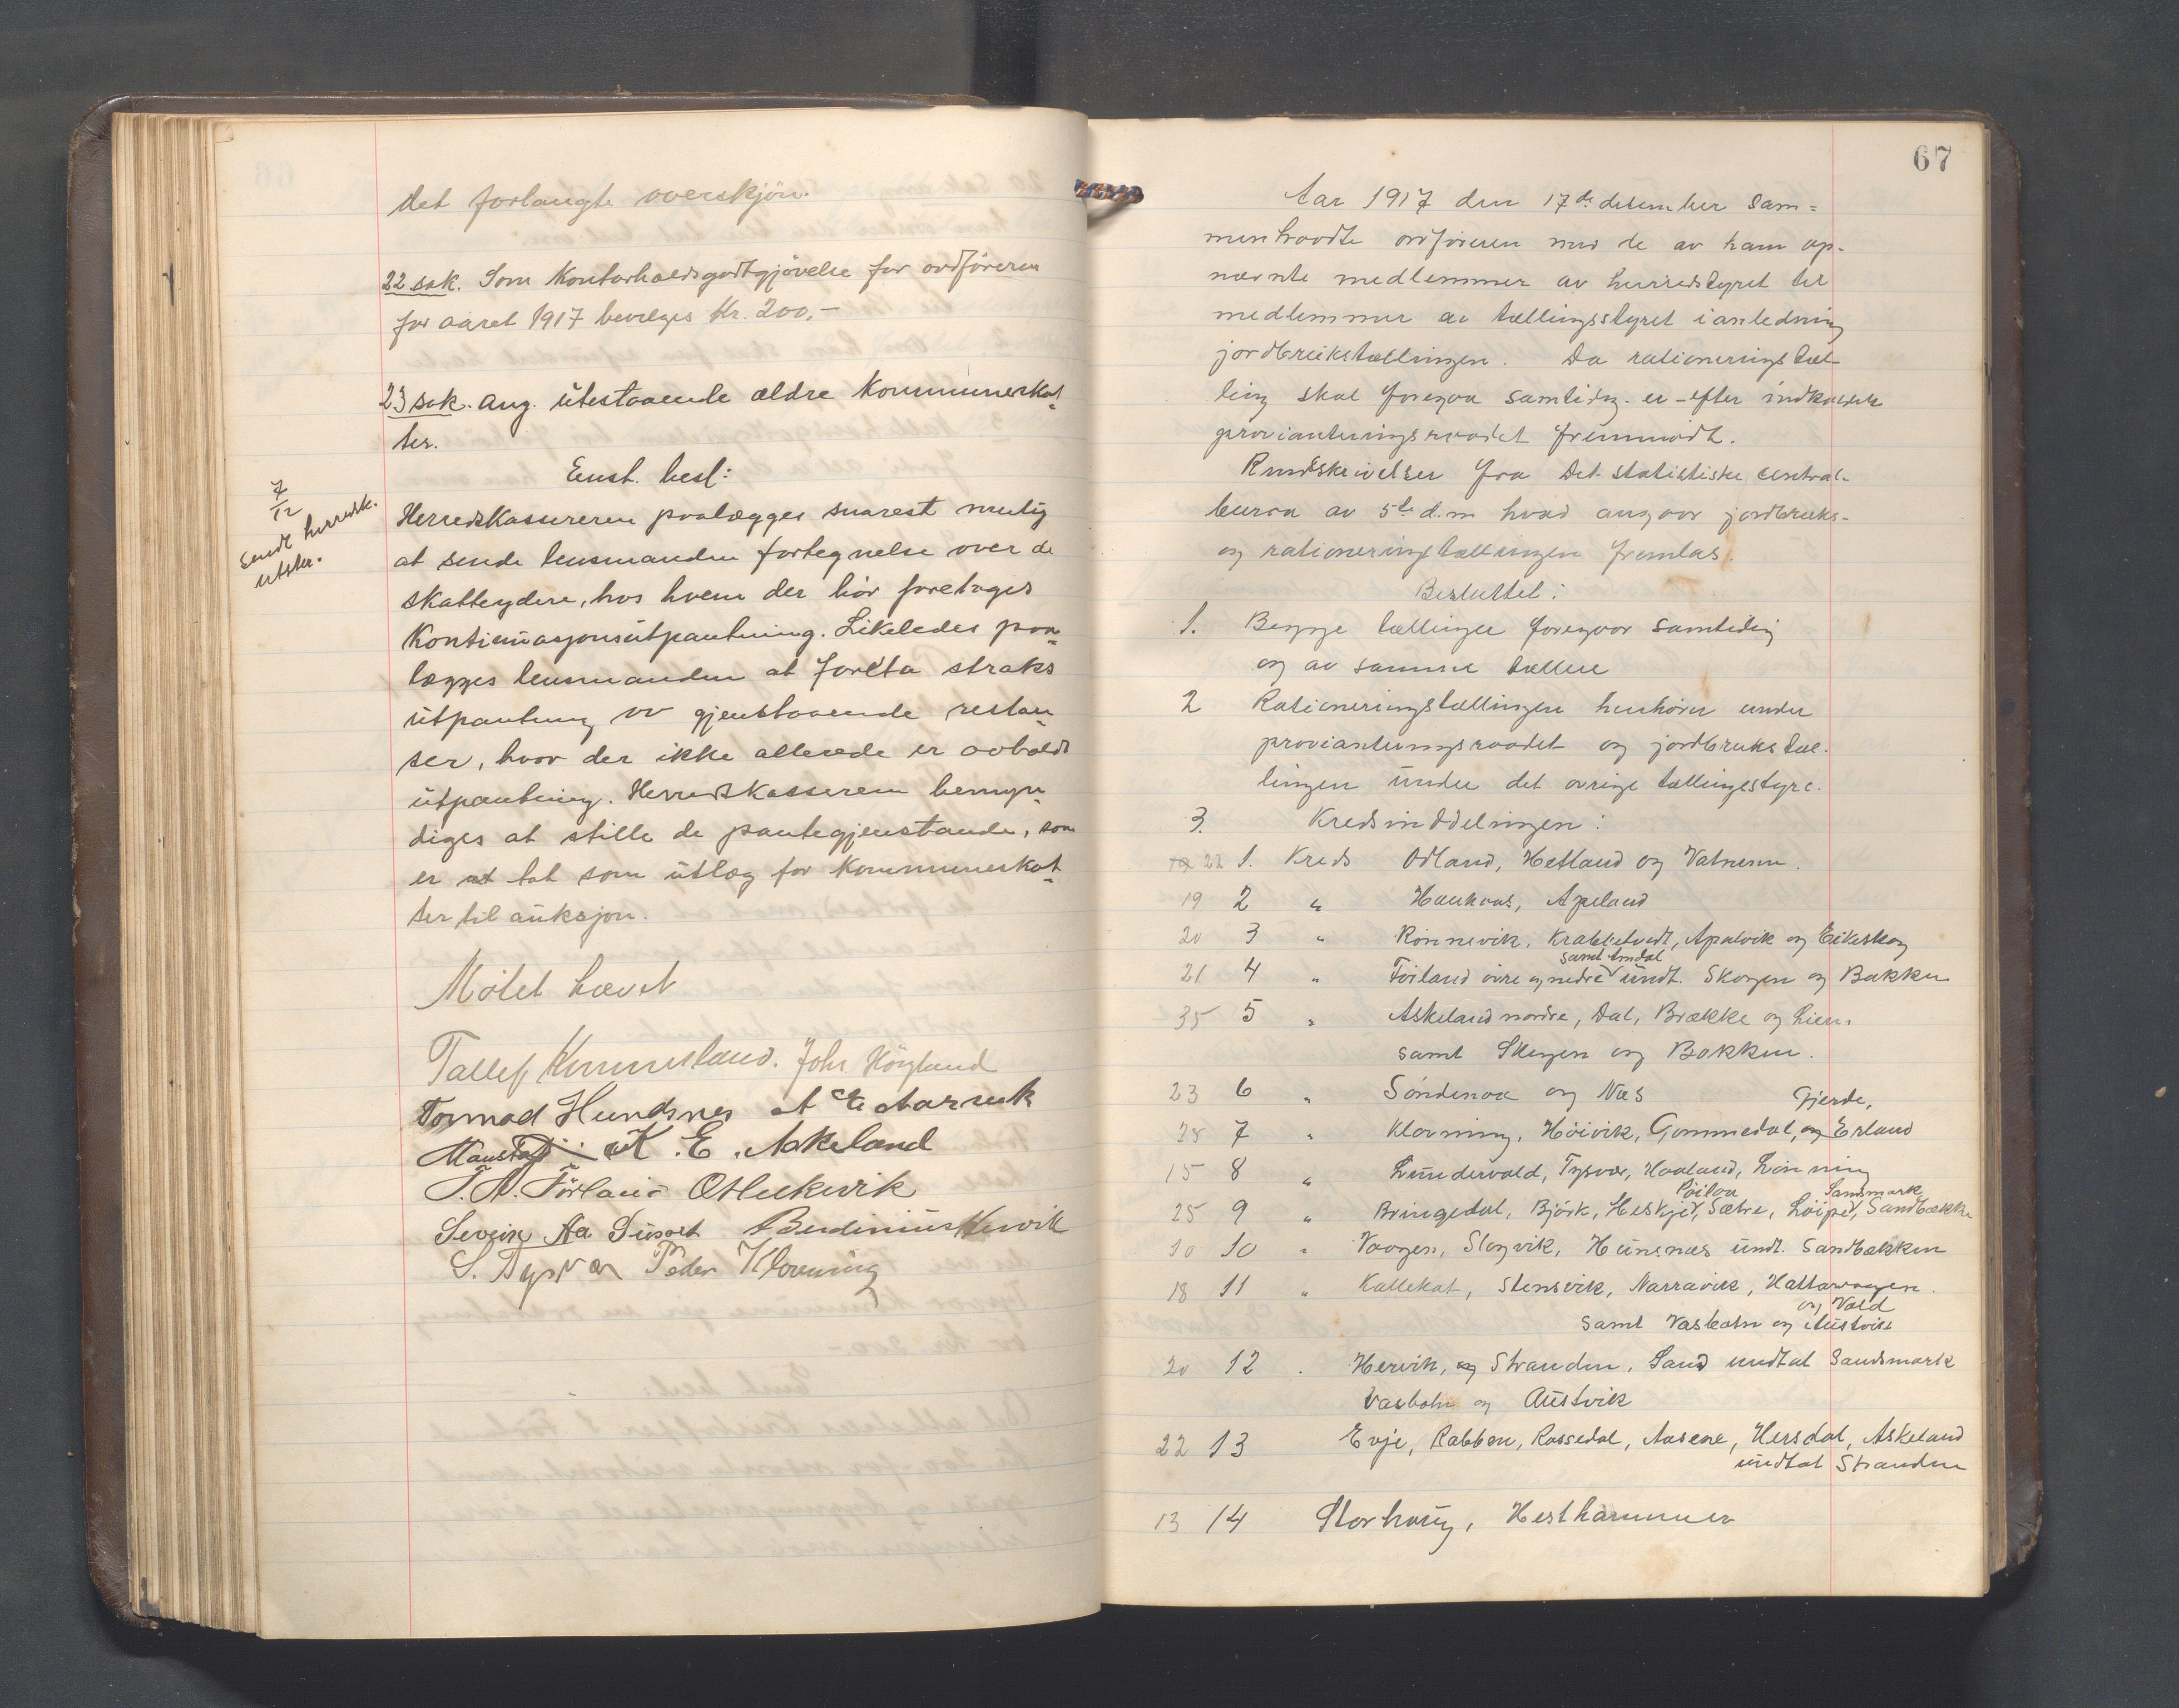 det forlangte overskjön.
22 sak. Som Kontorholdsgodtgjörelse for ordföreren
for aaret 1917 bevilges Kr. 200,-
23 sak. ang. utestaaende ældre Kommuneskat-
ter.
Enst. besl:
7/12
sendt herredsk.
utskr.
Herredskassereren paalægges snarest mulig
at sende lensmanden fortegnelse over de
skatteydere, hos hvem der bör foretages
Kontinuasjonsutpantning. Likeledes paa-
lægges lensmanden at foreta straks
utpantning av gjenstaaende restan-
ser, hvor der ikke allerede er avholdt
utpantning. Herredskassereren bemyn-
diges at stille de pantegjenstande, som
er tat som utlæg for Kommuneskat-
ter til auksjon.
Mötet hævet
Tallef Kunnesland. Johs Högland
Tormod Hundsnes A E Aarvik
K. E. Askeland
T. A. Förland O Hukervik
Severin Aa Berdinius Hervik
S. Tysvær Peder Klovning
67
Aar 1917 den 17de desember sam=
mentraadte ordföreren med de av ham op-
nævnte medlemmer av herredstyret til
medlemmer av tællingsstyret i anledning
jordbrukstællingen. Da rationeringstæl-
ling skal foregaa samtidig er efter indkaldelse
provianteringsraadet fremmödt.
Rundskrivelser fra Det statistiske central-
buraa av 5te d.m hvad angaar jordbruks-
og rationeringstællingen fremlas.
Besluttet:
1. Begge tællinger foregaar samtidig
og av samme tællere
2 Rationeringstællingen henhörer under
provianteringsraadet og jordbrukstæl-
lingen under det övrige tællingsstyre.
3. Kredsinddelingen:
22 1. Kreds Odland, Hetland og Vatnenn.
19 2 " Haukaas, Apeland
20 3 " Rönnevik, Krabbetvedt, Apalvik og Eikeskog
samt Amdal
21 4 " Förland övre og nedre undt. Skogen og Bakken
35 5 " Askeland nordre, Dal, Brække og Lien.
samt Skogen og Bakken.
23 6 " Söndenaa og Næs
Gjerde,
28 7 " Klovning, Höivik, Gommedal, og Erland
15 8 " Lundervold, Tysvær, Haaland, Lönning
Sandsmark
25 9 " Bringedal, Björk, Heskjed, Sætre, Löiped, Sandbække
10 10 " Vaagen, Slogvik, Hunsnæs undt. Sandbækken
18 11 " Kallekot, Stensvik, Narravik, Hattavaagen.
og Vold
samt Vasbotn og Austvik
20 12 . Hervik, og Stranden, Sand undtat Sandsmark
Vasbotn og Austvik
22 13 Evje, Rabben, Rossedal, Aasene, Hersdal, Askeland
undtat Stranden
13 14 Storhaug, Hesthammer